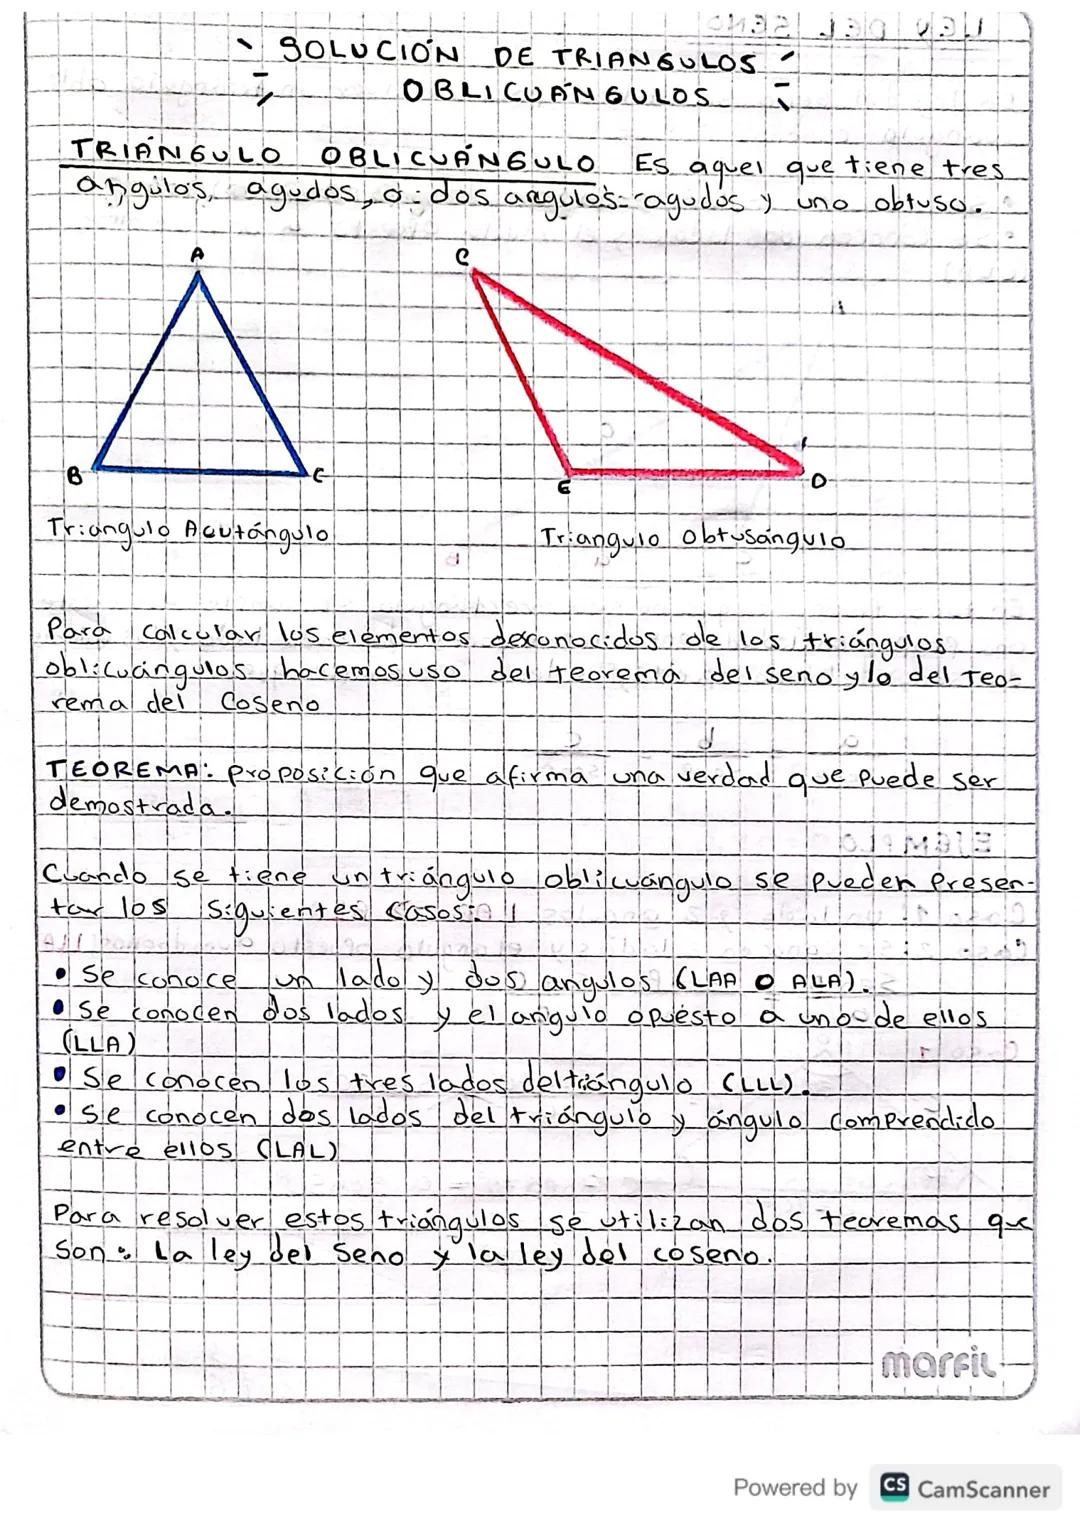 SOLUCIÓN DE TRIANGULOS
OBLICUÁNGULOS
TRIÁNGULO OBLICUÁNGULO Es aquel que tiene tres
angulos, agudos, o dos angulos agudos y uno obtuso.
A
C
B
C
E
D
Triangulo Acutángulo
Triangulo Obtusángulo
Para calcular los elementos desconocidos de los triángulos
oblicuángulos hacemos uso del teorema del seno y/o del Teo-
rema del Coseno
TEOREMA: proposición que afirma una verdad que puede ser
demostrada.
Cuando se tiene un triángulo oblicuángulo se pueden presen-
tar los siguientes casos:
• Se conoce un lado y dos angulos (LAA O ALA).
• Se conocen dos lados y el angulo opuesto a uno de ellos
(LLA)
• Se conocen los tres lados del triángulo (LLL).
• Se conocen dos lados del triángulo y ángulo comprendido
entre ellos (LAL)
Para resolver estos triángulos se utilizan dos teoremas que
son: La ley del seno y la ley del coseno.
marfil
Powered by CS CamScanner